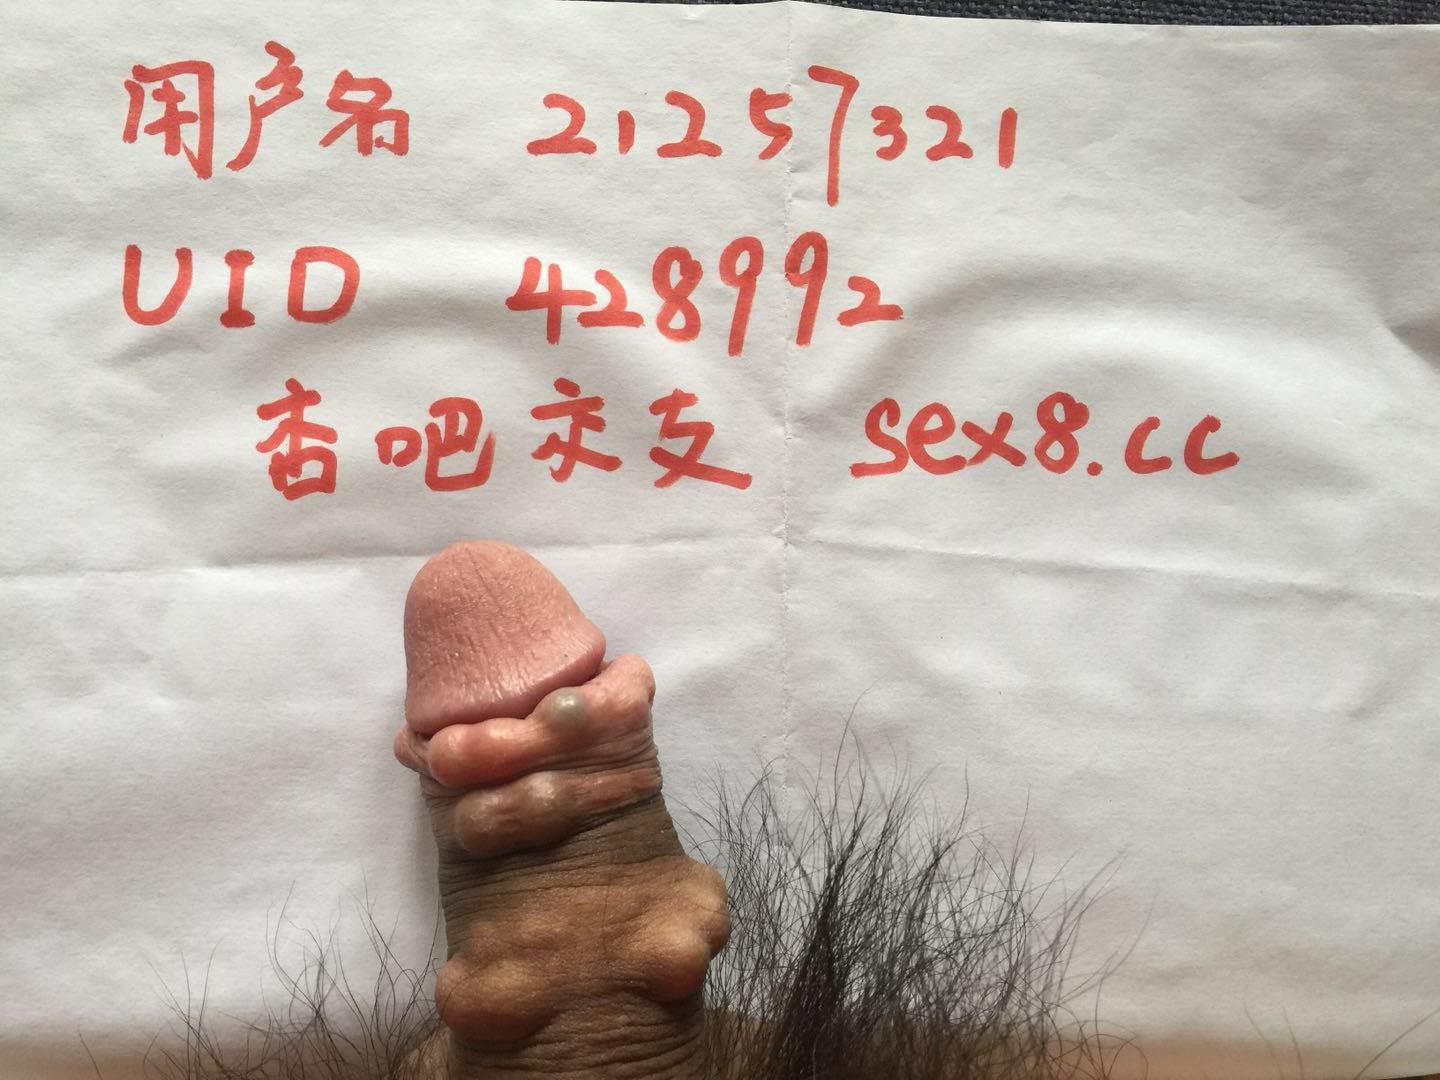 用户名 21257321
UID 428992
杏吧交支 sex8.cc